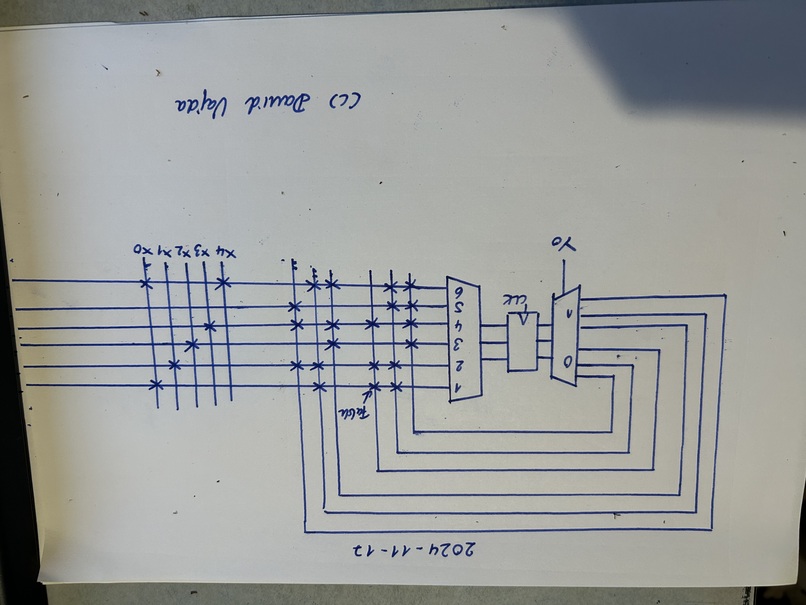 2024-11-17
1
2
0
3
4
5
6
CLK
Y0
x4 x3 x2 x1 x0
(c) David Vajda